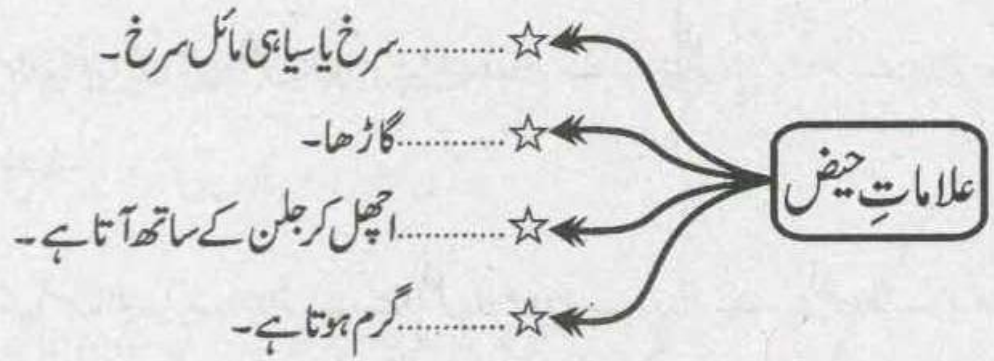 علاماتِ حیض
☆...........سرخ یا سیاہی مائل سرخ۔
☆...........گاڑھا۔
☆...........اچھل کر جلن کے ساتھ آتا ہے۔
☆...........گرم ہوتا ہے۔